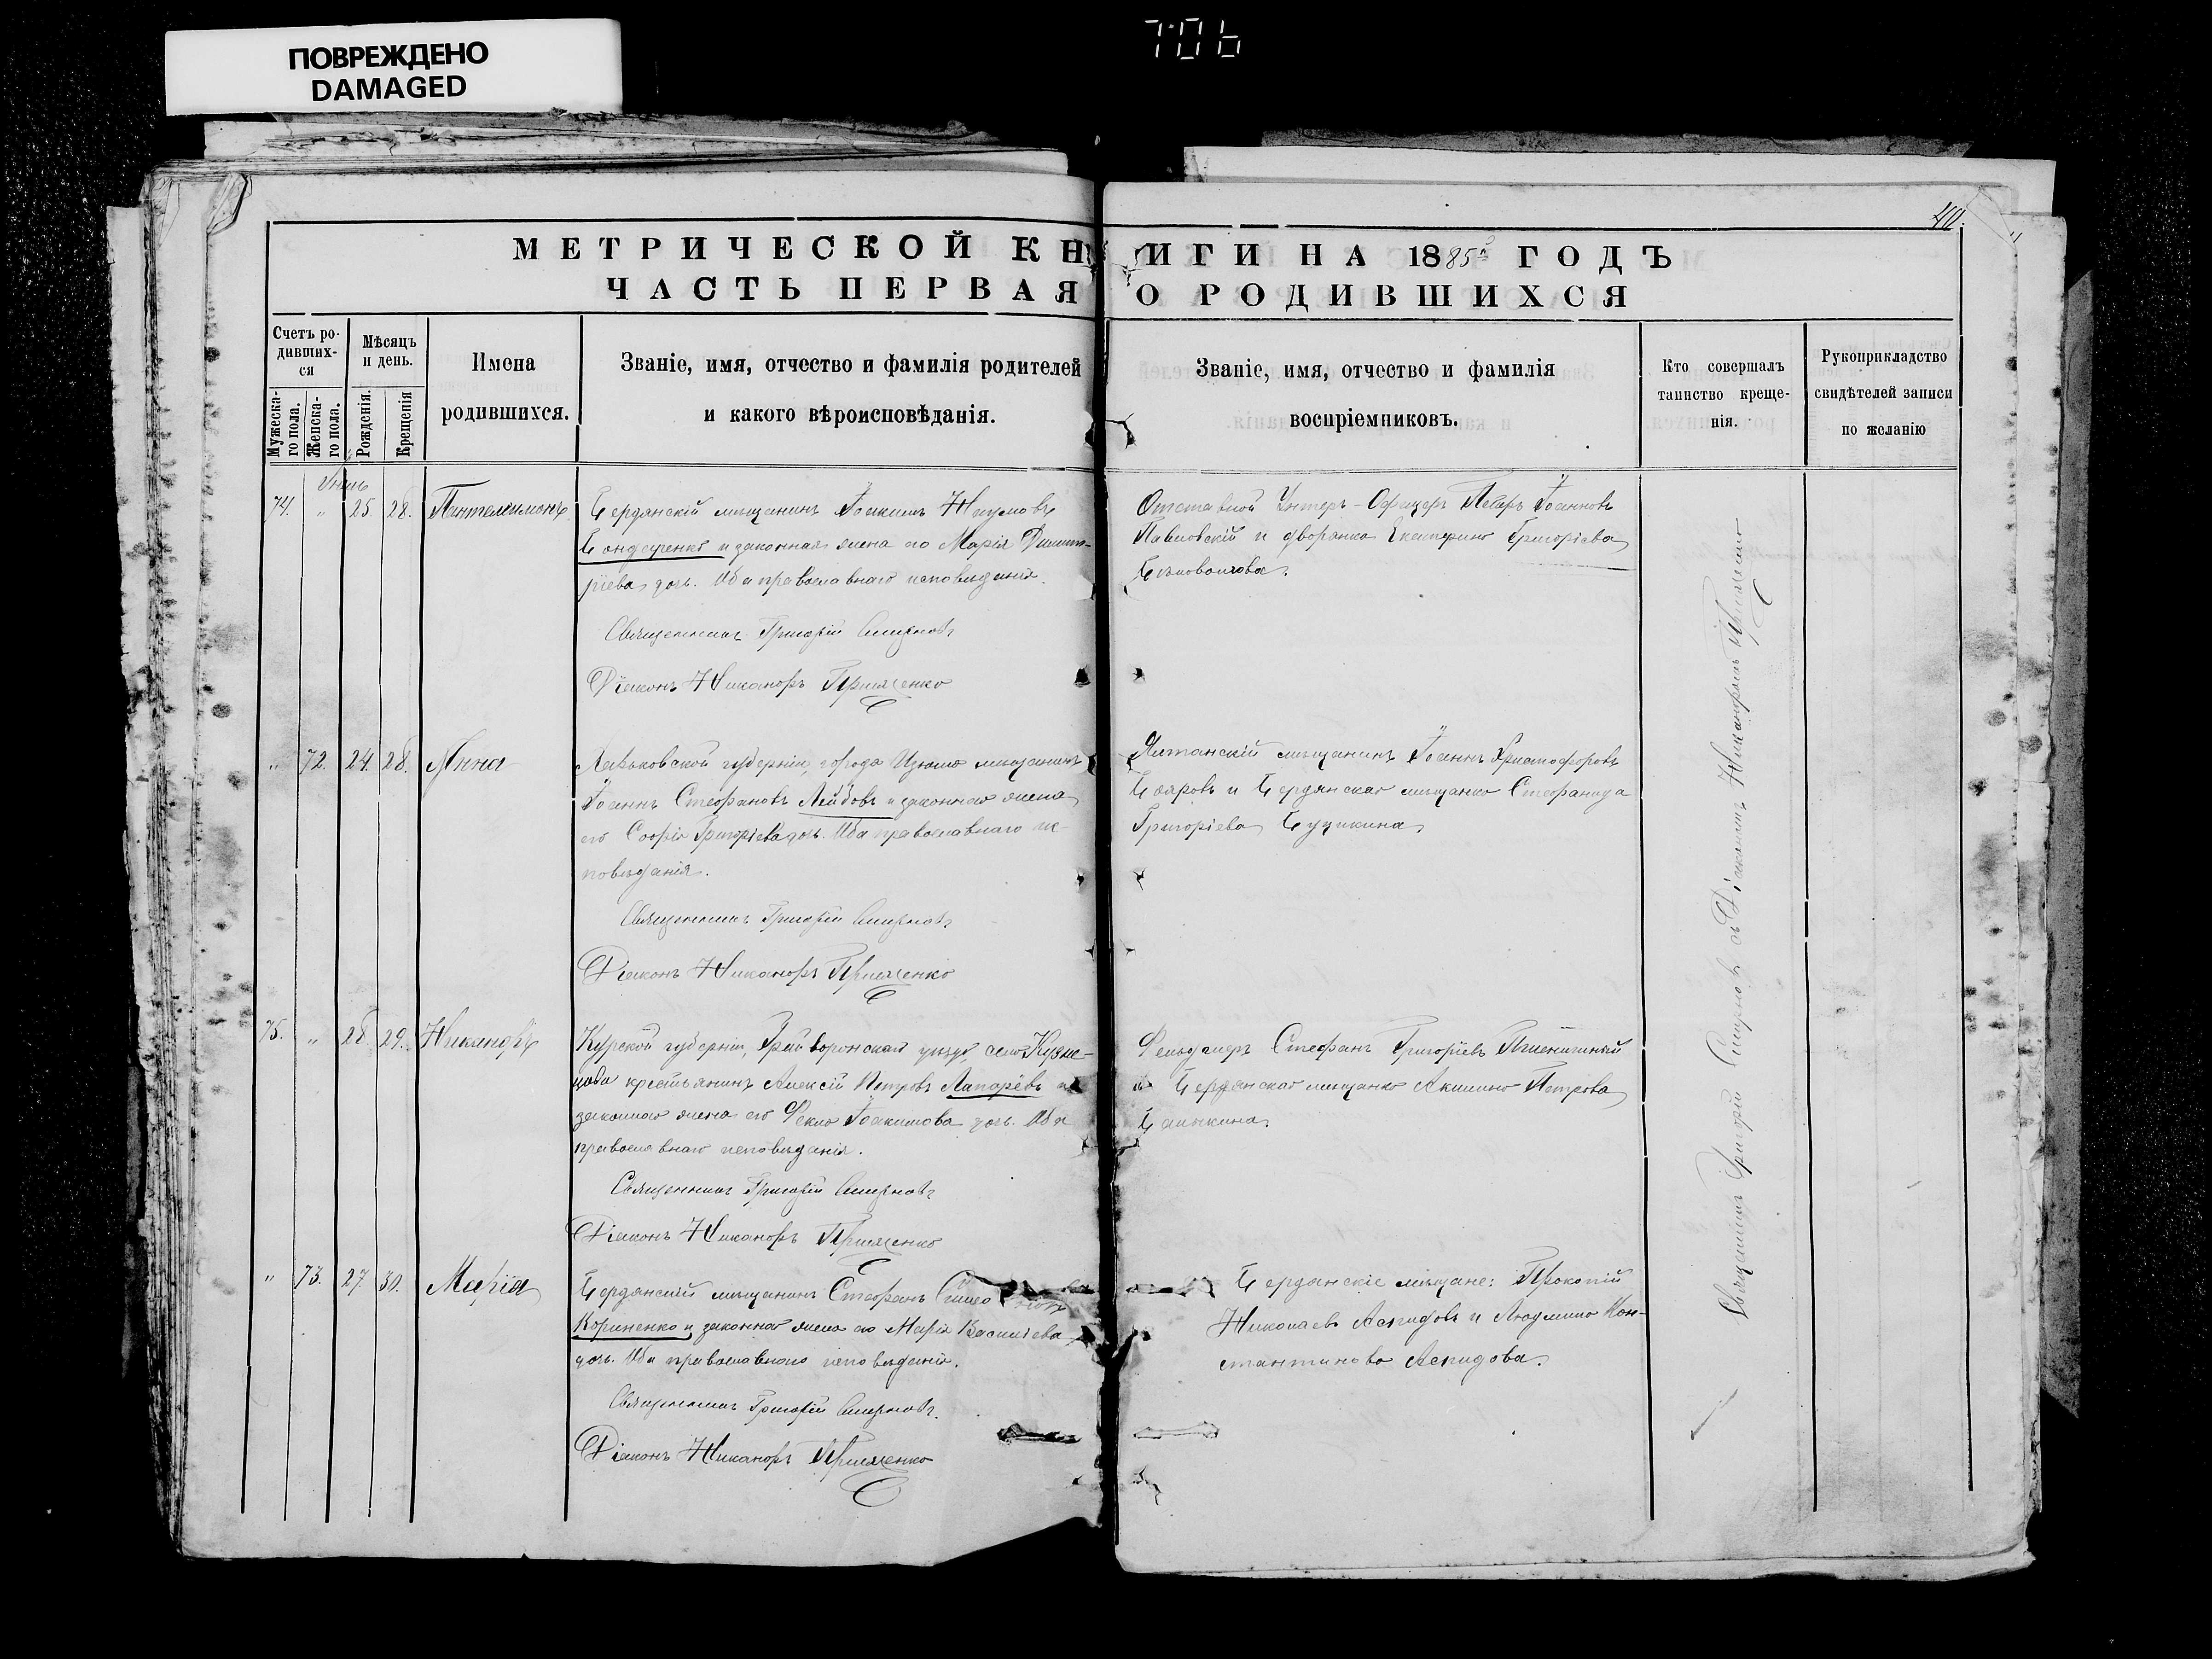 ПОВРЕЖДЕНО
DAMAGED
706
40.
МЕТРИЧЕСКОЙ КНИГИ НА 1885й ГОДЪ
ЧАСТЬ ПЕРВАЯ О РОДИВШИХСЯ
Счетъ родившихся
Мужескаго пола.
Женскаго пола.
Мѣсяцъ и день.
Рожденія.
Крещенія
Имена
родившихся.
Званіе, имя, отчество и фамилія родителей
и какого вѣроисповѣданія.
Званіе, имя, отчество и фамилія
воспріемниковъ.
Кто совершалъ
таинство креще-
нія.
Рукоприкладство
свидѣтелей записи
по желанію
74. " 25 28. Пантелеимонъ
Бердянскій мѣщанинъ Іоакимъ Наумовъ
Бондаренко и законная жена его Марія Димит-
ріева дочь. Оба православнаго исповѣданія.
Священникъ Григорій Смирновъ
Діаконъ Никаноръ Приженко
Отставной Унтеръ-Офицеръ Петръ Іоанновъ
Павловскій и дворянка Екатерина Григоріева
" 72. 24. 28. Анна
Харьковской губерніи, города Изюма мѣщанинъ
Іоаннъ Стефановъ Лейбовъ и законная жена
его Софія Григоріева дочь. Оба православнаго ис-
повѣданія.
Священникъ Григорій Смирновъ
Діаконъ Никаноръ Приженко
Ялтанскій мѣщанинъ Іоаннъ Христофоровъ
Бояровъ и Бердянская мѣщанка Стефанида
Григоріева
75. " 28. 29. Никандръ
Курской губерніи, Грайворонскаго уѣзда, села Кузне-
цова крестьянинъ Алексій Петровъ Лапаревъ и
законная жена его Фекла Іоакимова дочь. Оба
православнаго исповѣданія.
Священникъ Григорій Смирновъ
Діаконъ Никаноръ Приженко
Фельдшеръ Стефанъ Григоріевъ Пшеничный
и Бердянская мѣщанка Акилина Петрова
" 73. 27. 30. Марія
Бердянскій мѣщанинъ Стефанъ
Кориненко и законная жена его Марія Василіева
дочь. Оба православнаго исповѣданія.
Священникъ Григорій Смирновъ.
Діаконъ Никаноръ Приженко
Бердянскіе мѣщане: Прокопій
Николаевъ Аспидовъ и Людмила Кон-
стантинова Аспидова.
Священникъ Григорій Смирновъ съ Діакономъ Никаноромъ Приженко